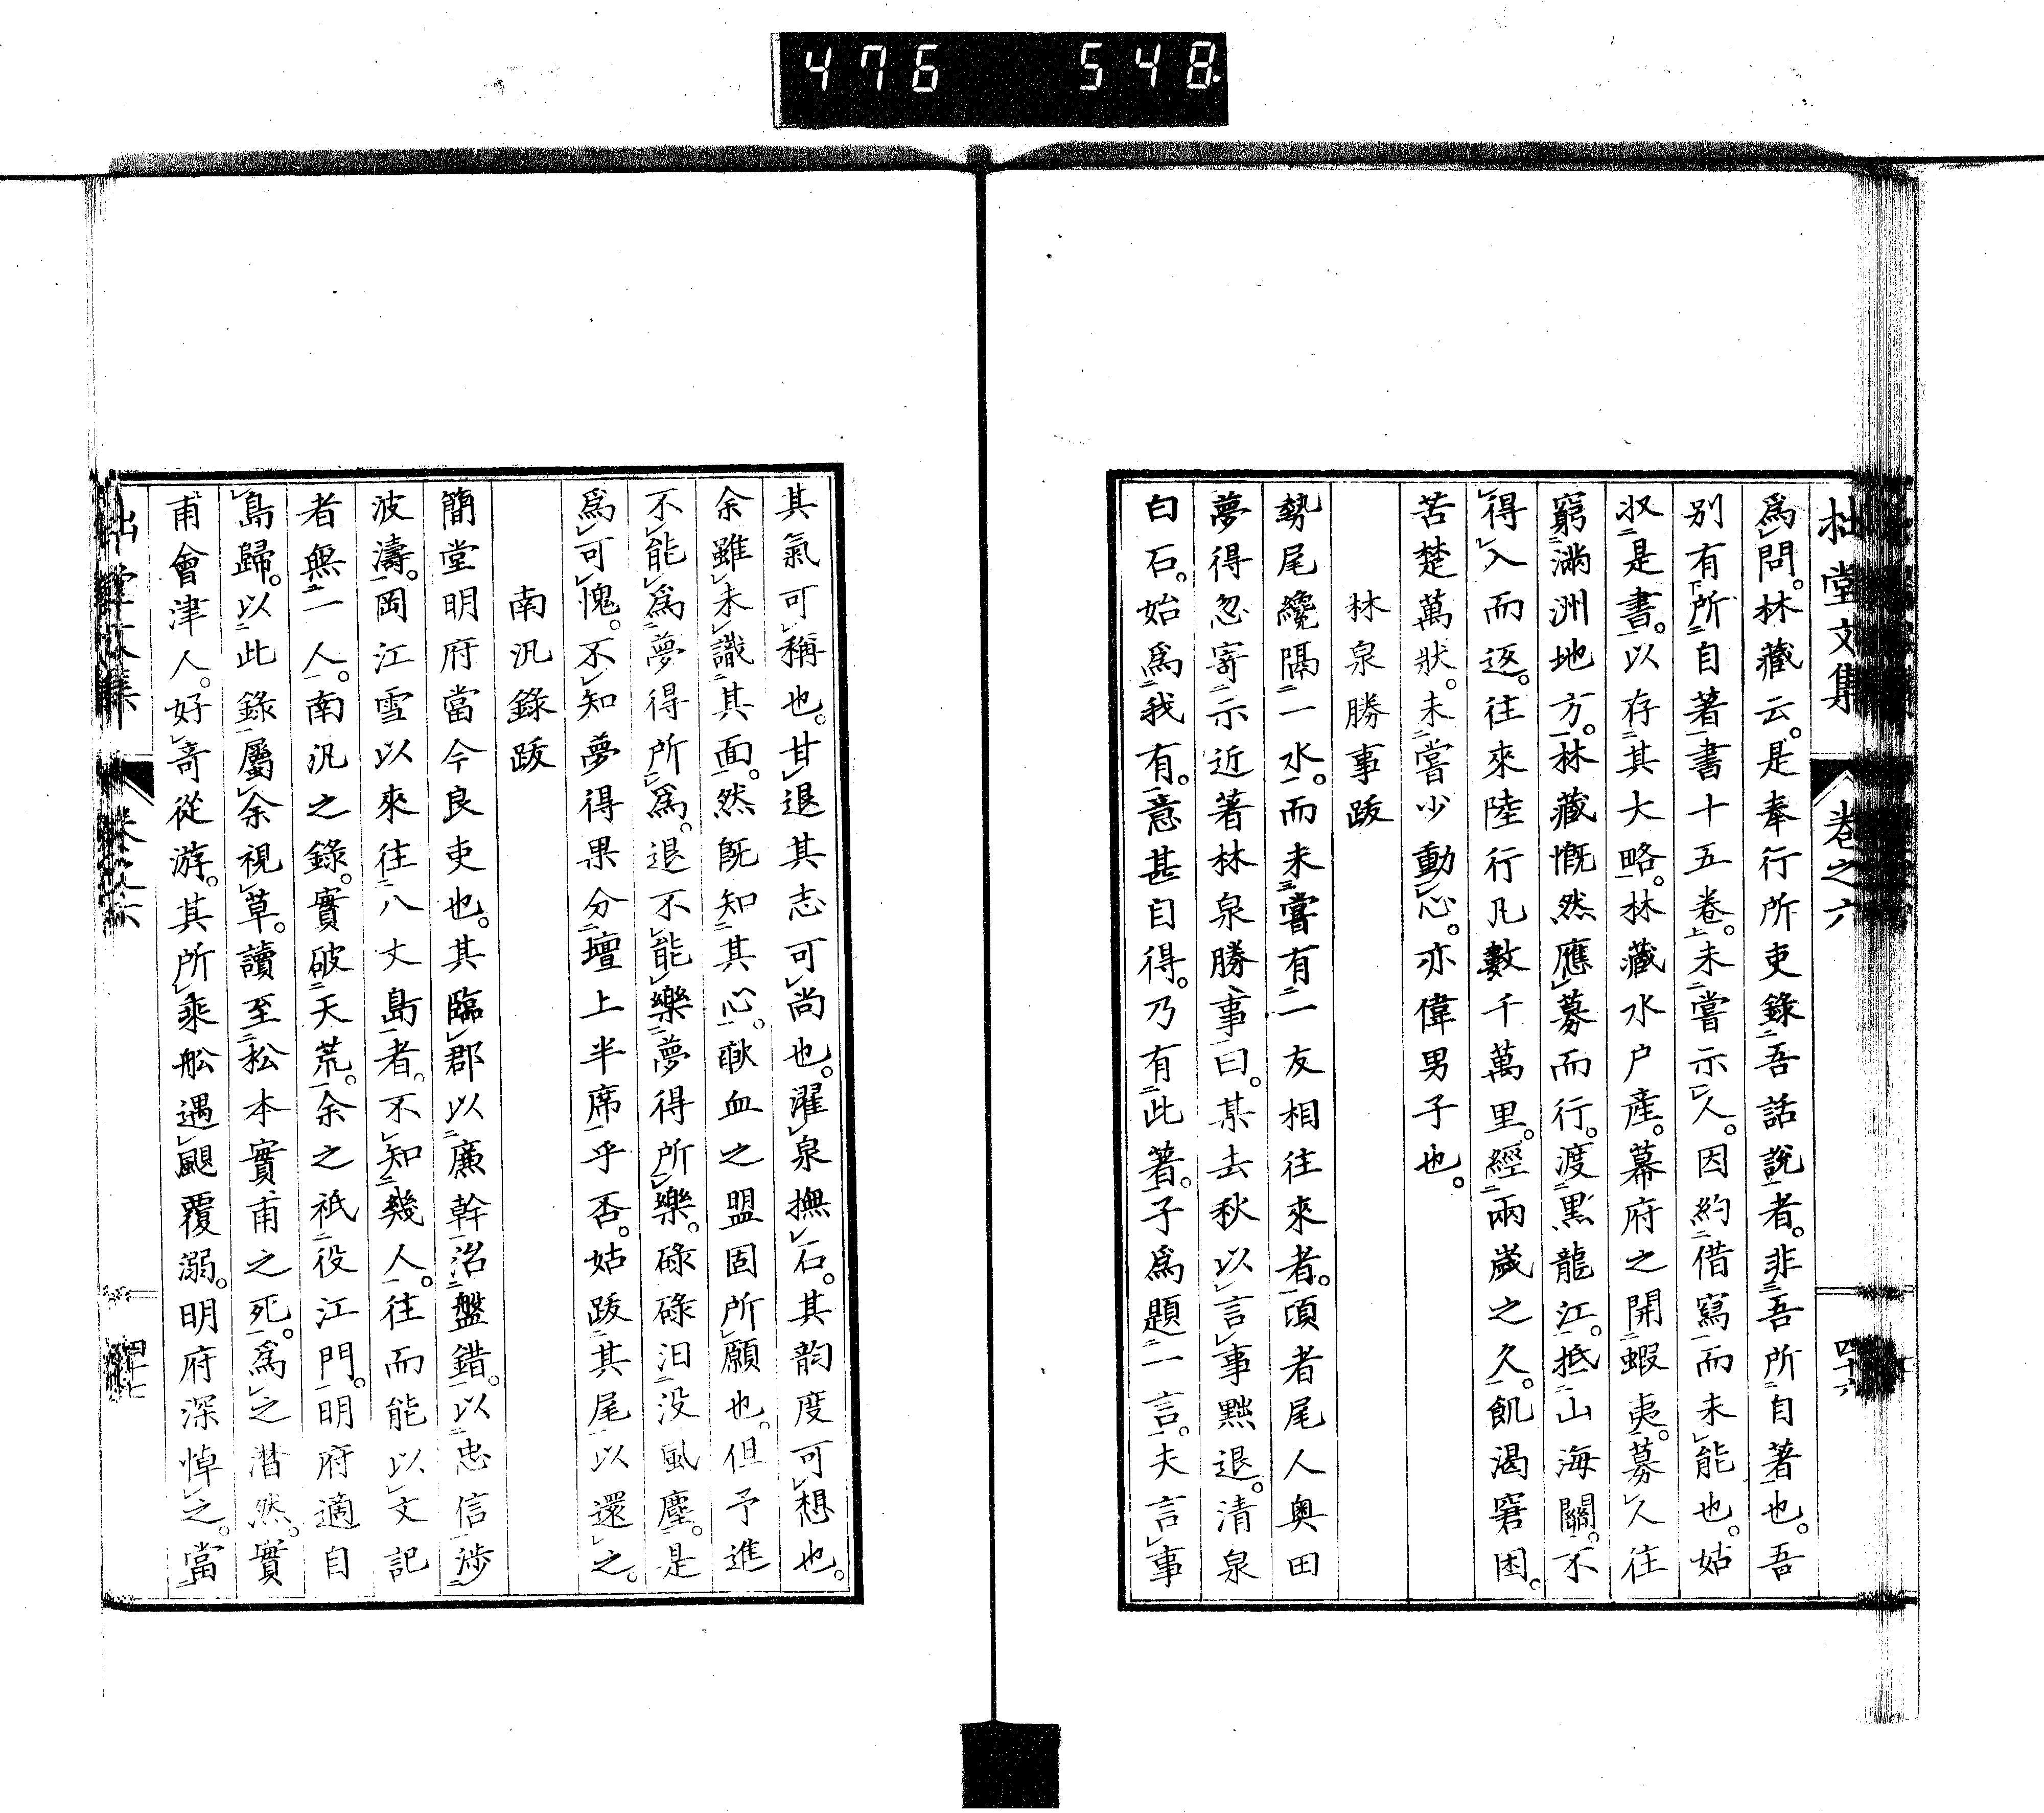 476 548
拙堂文集 卷之六 四十六
爲問。林藏云。是奉行所吏錄吾話說者。非吾所自著也。吾
別有所自著書十五卷。未嘗示人。因約借寫而未能也。姑
収是書。以存其大略。林藏水戶產。幕府之開蝦夷。募人往
窮滿洲地方。林藏慨然應募而行。渡黑龍江。抵山海關。不
得入而返。往來陸行凡數千萬里。經兩歲之久。飢渴窘困。
苦楚萬狀。未嘗少動心。亦偉男子也。
林泉勝事跋
勢尾纔隔一水。而未嘗有一友相往來者。頃者尾人奧田
夢得忽寄示近著林泉勝事曰。某去秋以言事黜退。清泉
白石。始爲我有。意甚自得。乃有此著。子爲題一言。夫言事
其氣可稱也。甘退其志可尚也。濯泉撫石。其韵度可想也。
余雖未識其面。然既知其心。歃血之盟固所願也。但予進
不能爲夢得所爲。退不能樂夢得所樂。碌碌汩没風塵。是
爲可愧。不知夢得果分壇上半席乎否。姑跋其尾以還之。
南汎錄跋
簡堂明府當今良吏也。其臨郡以廉幹治盤錯。以忠信涉
波濤。岡江雪以來往八丈島者。不知幾人。往而能以文記
者無一人。南汎之錄。實破天荒。余之祇役江門。明府適自
島歸。以此錄屬余視草。讀至松本實甫之死。爲之潸然。實
甫會津人。好奇從游。其所乘舩遇颶覆溺。明府深悼之。當
卷之六 四十七